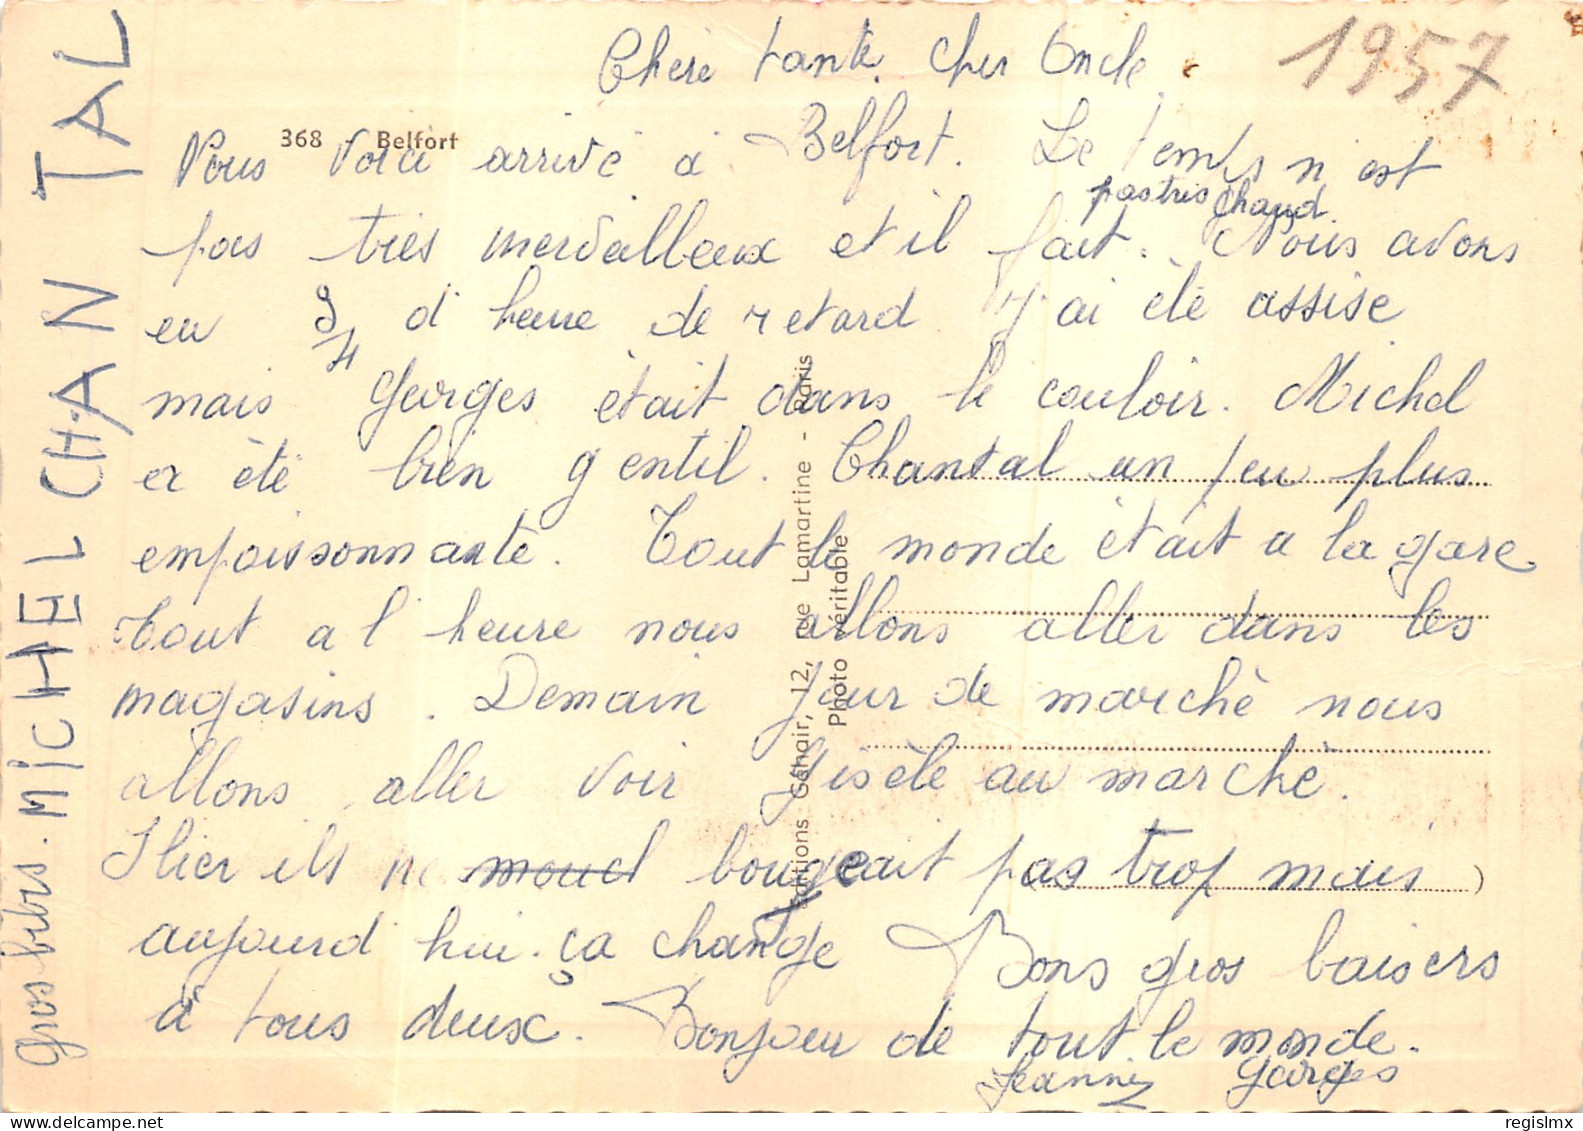 1957
Chère tante. Cher Oncle.
368 Belfort
Nous voici arrivé à Belfort. Le temps n'est
pas très chaud.
pas très merveilleux et il fait. Nous avons
eu 3/4 d'heure de retard. J'ai été assise
mais Georges était dans le couloir. Michel
a été bien gentil. Chantal un peu plus
empoissonnante. Tout le monde était a la gare
Tout a l'heure nous allons aller dans les
magasins. Demain jour de marché nous
allons aller voir Gisèle au marché.
Hier ils ne bougeait pas trop mais
aujourd'hui ça change Bons gros baisers
à tous deux. Bonjour de tout le monde.
Jeannine Georges
Gros bibis. MICHEL CHANTAL
Editions Géhair, 12, rue Lamartine - Paris
Photo véritable
regislmx